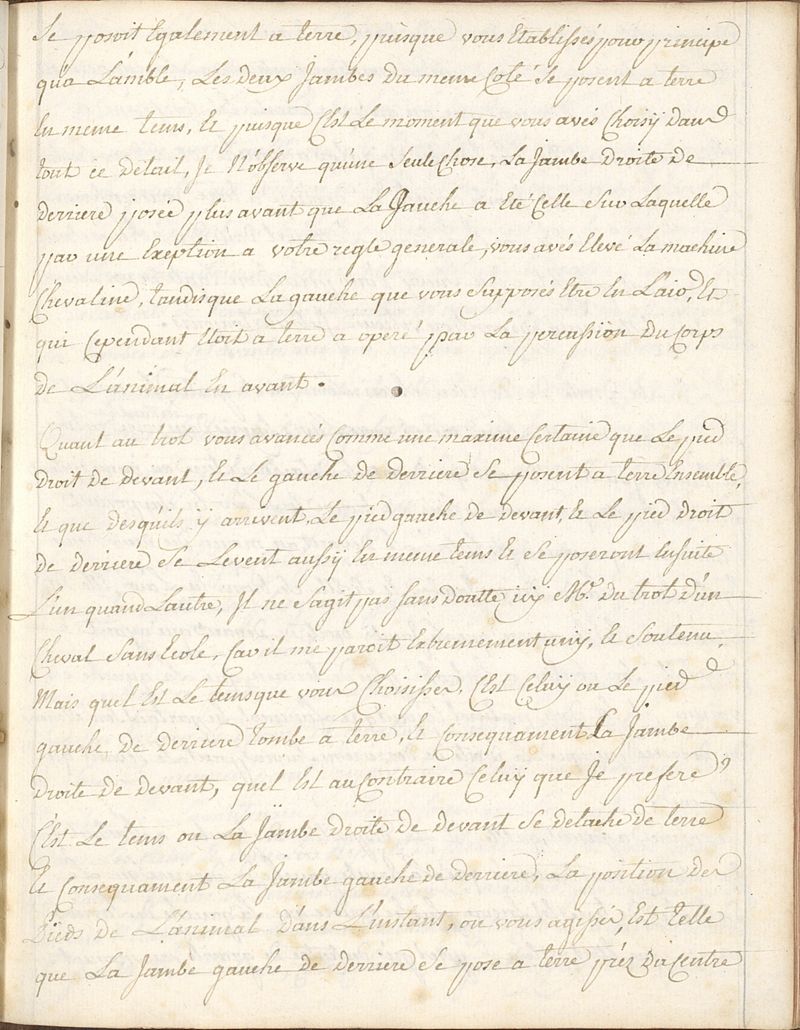 se posoit Egalement a terre, puisque vous Etablissés pour principe
qua L'amble, Les deux Jambes du meme Coté se posent a terre
En meme tems, Et puisque C'Est Le moment que vous avés Choisÿ dans
tout ce détail, Je N'observe qu'une seule Chose, La Jambe droite de
derriere posée plus avant que La Gauche a Eté Celle sur Laquelle
par une Exeption a votre regle generale, vous avés Elevé La machine
Chevaline, tandisque La gauche que vous supposés Etre En L'air, Et
qui Cependant Etoit a terre a operé par La percussion du Corps
de L'animal En avant.
Quant au trot vous avancés Comme une maxime Certaine que Le pied
droit de devant, Et Le gauche de derriere se posent a terre Ensemble,
Et que desqu'ils ÿ arrivent, Le pied gauche de devant, Et Le pied droit
de derriere se Levent aussÿ En meme tems Et se poseront Ensuite
L'un quand Lautre, Jl ne s'agit pas sans doutte icÿ Mr. du trot d'un
Cheval sans Ecole, Car il me paroit Extremement unÿ, Et soutenu,
Mais quel Est Le temsque vous Choisissés, C'Est Celuÿ ou Le pied
gauche de derriere tombe a terre, Et Consequament La Jambe
droite de devant, quel Est au Contraire Celuÿ que Je prefere?
C'Est Le tems ou La Jambe droite de devant se detache de terre
Et Consequament La Jambe gauche de derriere, La position des
Pieds de L'animal dans L'instant, ou vous agissés, Est telle
que La Jambe gauche de derriere se pose a terre préz du Centre